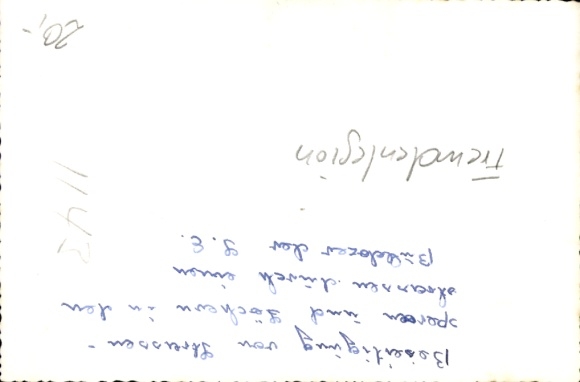 Beseitigung von Strassen-
sperren und Löchern in den
strassen durch einen
Bulldozer der L.E.
Fremdenlegion
20,-